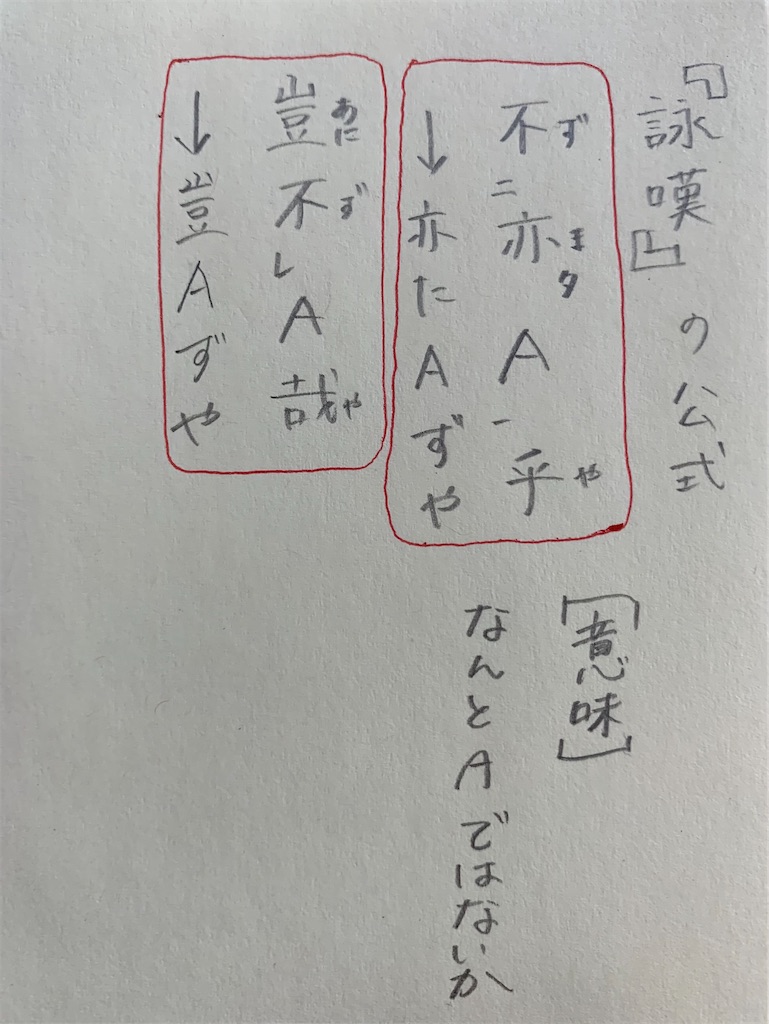 『詠嘆』の公式
不ず二亦マタA一乎や
→亦たAずや
豈あに不ずレA哉や
→豈Aずや
[意味]
なんとAではないか